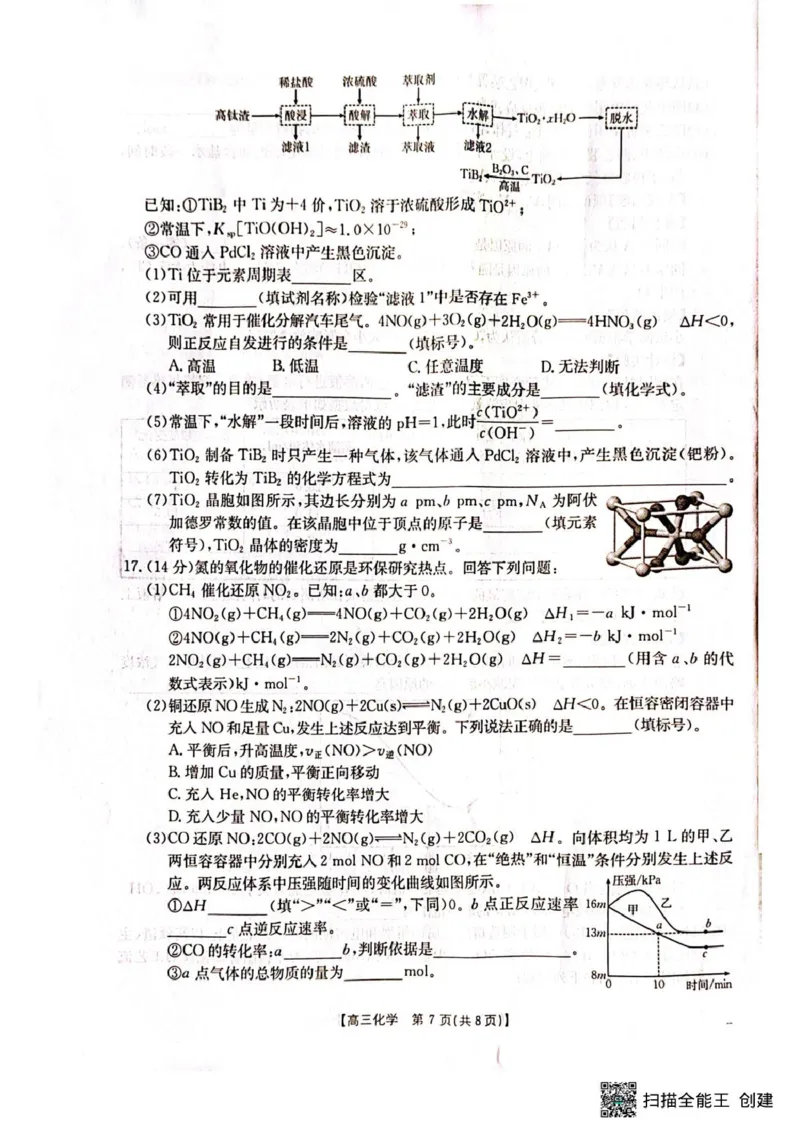 稀盐酸 浓硫酸 萃取剂
高钛渣 酸浸 酸解 萃取 水解 TiO₂·xH₂O 脱水
滤液1 滤渣 萃取液 滤液2
TiB₂ B₂O₃,C 高温 TiO₂
已知:①TiB₂ 中 Ti 为+4 价,TiO₂ 溶于浓硫酸形成 TiO²⁺;
②常温下,Ksp[TiO(OH)₂]≈1.0×10⁻²⁹;
③CO 通入 PdCl₂ 溶液中产生黑色沉淀。
(1)Ti 位于元素周期表______区。
(2)可用______(填试剂名称)检验“滤液 1”中是否存在 Fe³⁺。
(3)TiO₂ 常用于催化分解汽车尾气。4NO(g)+3O₂(g)+2H₂O(g)══4HNO₃(g) ΔH<0,
则正反应自发进行的条件是______(填标号)。
A. 高温 B. 低温 C. 任意温度 D. 无法判断
(4)“萃取”的目的是____________。“滤渣”的主要成分是______(填化学式)。
(5)常温下,“水解”一段时间后,溶液的 pH=1,此时c(TiO²⁺)/c(OH⁻)=______。
(6)TiO₂ 制备 TiB₂ 时只产生一种气体,该气体通入 PdCl₂ 溶液中,产生黑色沉淀(钯粉)。
TiO₂ 转化为 TiB₂ 的化学方程式为____________。
(7)TiO₂ 晶胞如图所示,其边长分别为 a pm、b pm、c pm,N_A 为阿伏
加德罗常数的值。在该晶胞中位于顶点的原子是______(填元素
符号),TiO₂ 晶体的密度为______g·cm⁻³。
17. (14 分)氮的氧化物的催化还原是环保研究热点。回答下列问题:
(1)CH₄ 催化还原 NO₂。已知:a、b 都大于 0。
①4NO₂(g)+CH₄(g)══4NO(g)+CO₂(g)+2H₂O(g) ΔH₁=−a kJ·mol⁻¹
②4NO(g)+CH₄(g)══2N₂(g)+CO₂(g)+2H₂O(g) ΔH₂=−b kJ·mol⁻¹
2NO₂(g)+CH₄(g)══N₂(g)+CO₂(g)+2H₂O(g) ΔH=______(用含 a、b 的代
数式表示)kJ·mol⁻¹。
(2)铜还原 NO 生成 N₂:2NO(g)+2Cu(s)⇌N₂(g)+2CuO(s) ΔH<0。在恒容密闭容器中
充入 NO 和足量 Cu,发生上述反应达到平衡。下列说法正确的是______(填标号)。
A. 平衡后,升高温度,v正(NO)>v逆(NO)
B. 增加 Cu 的质量,平衡正向移动
C. 充入 He,NO 的平衡转化率增大
D. 充入少量 NO,NO 的平衡转化率增大
(3)CO 还原 NO:2CO(g)+2NO(g)⇌N₂(g)+2CO₂(g) ΔH。向体积均为 1 L 的甲、乙
两恒容容器中分别充入 2 mol NO 和 2 mol CO,在“绝热”和“恒温”条件分别发生上述反
应。两反应体系中压强随时间的变化曲线如图所示。
①ΔH______(填“>”“<”或“=”,下同)0。b 点正反应速率
______c 点逆反应速率。
②CO 的转化率:a______b,判断依据是____________。
③a 点气体的总物质的量为______mol。
压强/kPa
16m 甲 乙
13m a b
c
8m
0 10 时间/min
【高三化学 第 7 页(共 8 页)】
扫描全能王 创建